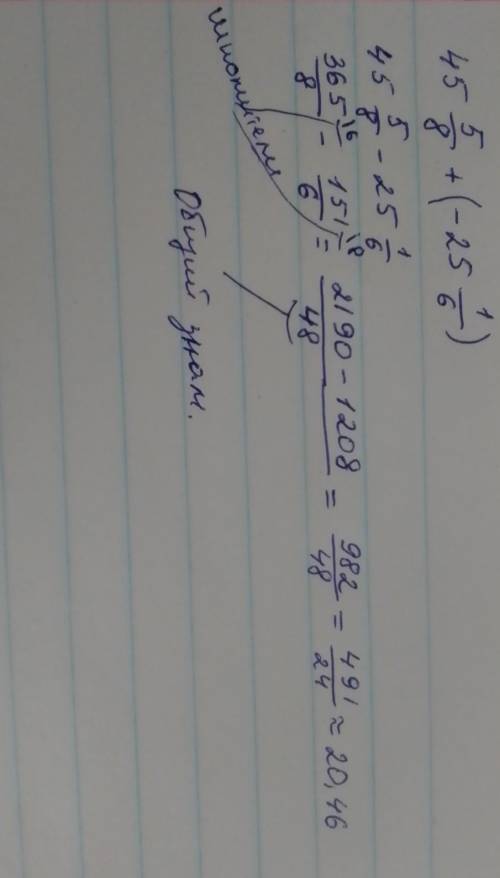 45 5/8 + (-25 1/6)
45 5/8 - 25 1/6
365\6/8 - 151\8/6 = 2190-1208/48 = 982/48 = 491/24 ≈ 20,46
множители
Общий знам.